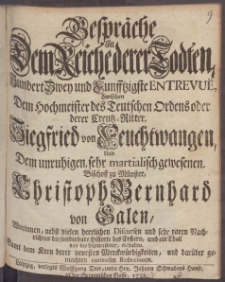 9
Gespräche
In
Dem Reiche derer Todten,
Hundert Zwey und Funffzigste ENTREVUE,
Zwischen
Dem Hochmeister des Teutschen Ordens oder
derer Creutz-Ritter,
Siegfried von Feuchtwangen,
Und
Dem unruhigen, sehr martialisch gewesenen
Bischoff zu Münster,
Christoph Bernhard
von Galen,
Worinnen, nebst vielen herrlichen Discursen und sehr raren Nach-
richten das sonderbare Historie des Erstern, und ein Theil
von des Letztern, enthalten.
Samt dem Kern derer neuesten Merckwürdigkeiten, und darüber ge-
machten curieusen Reflexionen.
Leipzig, verlegts Wolffgang Deer, unter Hrn. Johann Schwabens Hause,
in der Grimmischen Gasse, 1732.